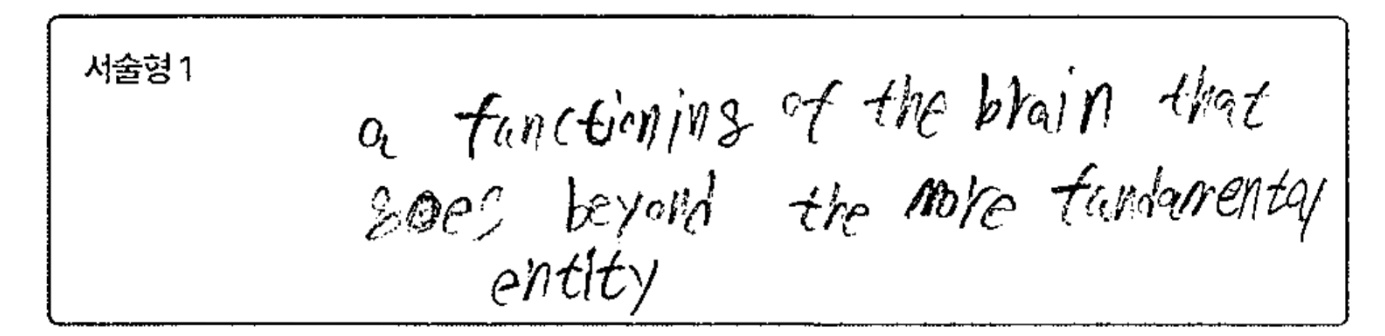 서술형 1
a functioning of the brain that
goes beyond the more fundamental
entity